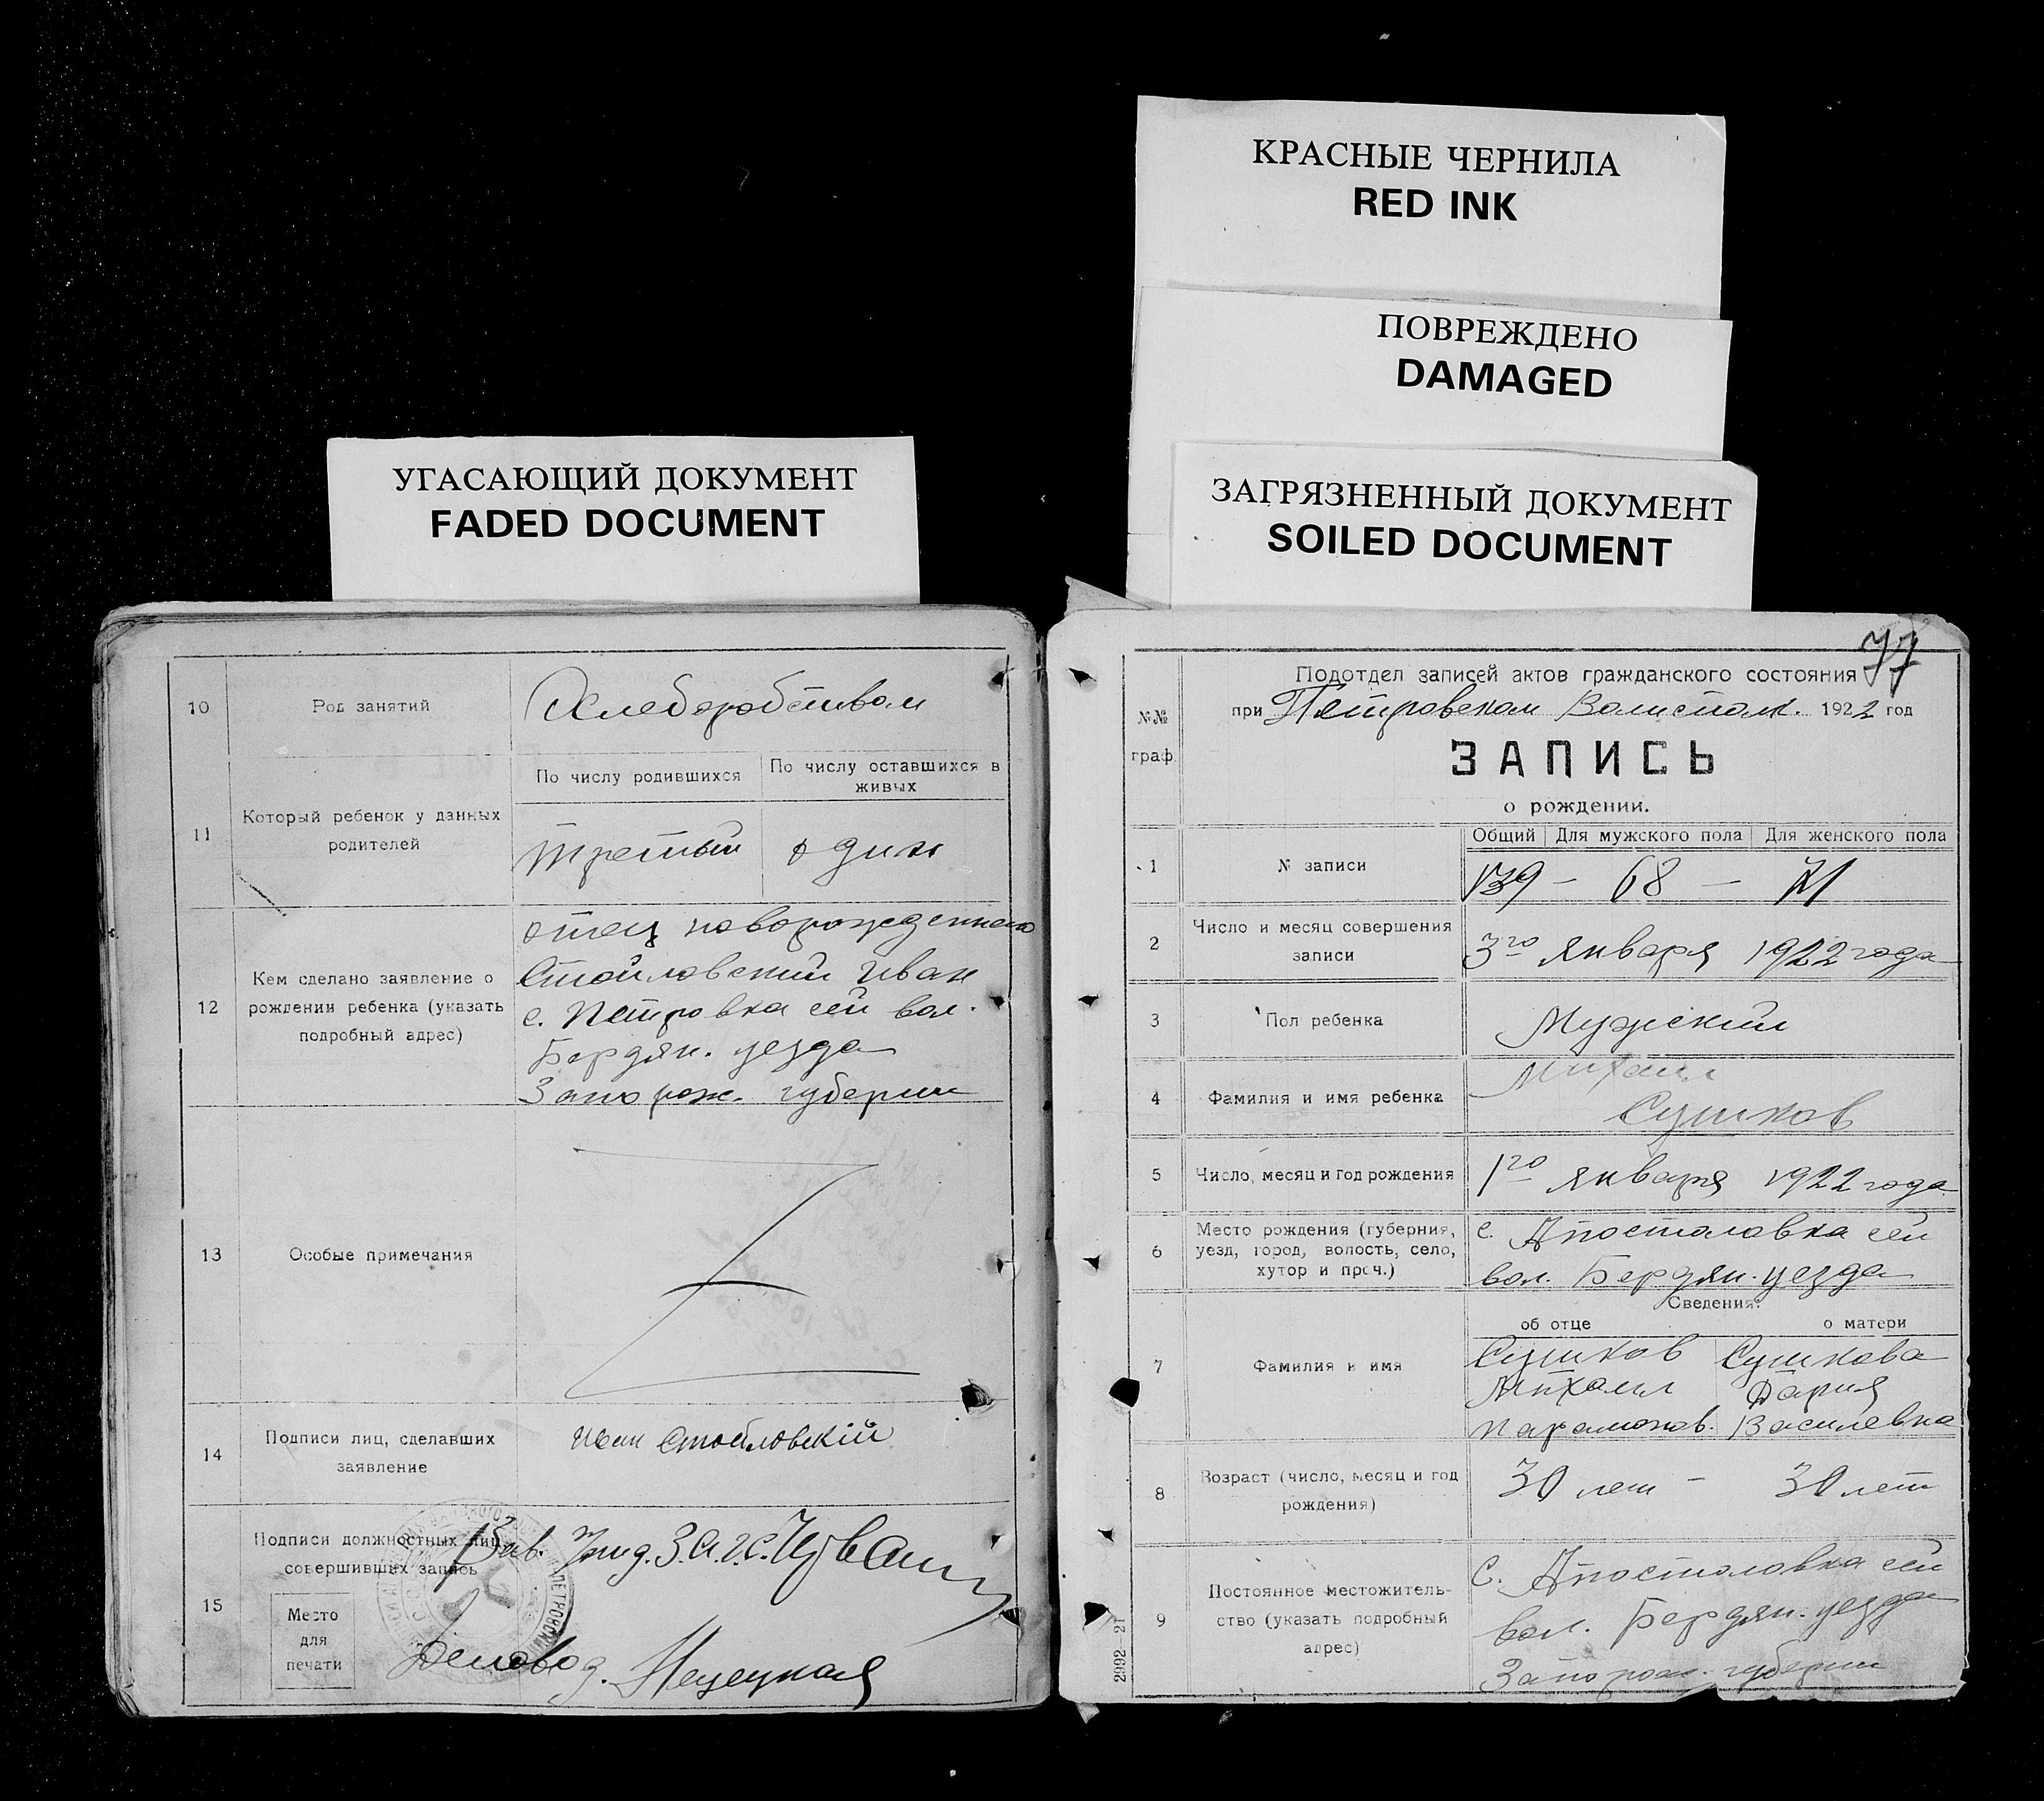 КРАСНЫЕ ЧЕРНИЛА
RED INK
ПОВРЕЖДЕНО
DAMAGED
ЗАГРЯЗНЕННЫЙ ДОКУМЕНТ
SOILED DOCUMENT
УГАСАЮЩИЙ ДОКУМЕНТ
FADED DOCUMENT
10
Род занятий
Хлеборобством
11
Который ребенок у данных
родителей
По числу родившихся
По числу оставшихся в
живых
третий
один
12
Кем сделано заявление о
рождении ребенка (указать
подробный адрес)
отец новорожденного
Стойловский Иван
с. Петровка сей вол.
Бердян. уезда
Запорож. губернии
13
Особые примечания
14
Подписи лиц, сделавших
заявление
Иван Стойловскій
15
Подписи должностных лиц,
совершивших запись
Зав. 
Место
для
печати
Деловод.
77
Подотдел записей актов гражданского состояния
при Петровском 1922 год
№№
граф.
ЗАПИСЬ
о рождении.
1
№ записи
Общий
Для мужского пола
Для женского пола
139 — 68 — 71
2
Число и месяц совершения
записи
3го января 1922 года
3
Пол ребенка
Мужский
4
Фамилия и имя ребенка
Михаил
Сушков
5
Число, месяц и год рождения
1го января 1922 года
6
Место рождения (губерния,
уезд, город, волость, село,
хутор и проч.)
с. Апостоловка сей
вол. Бердян. уезда
Сведения:
об отце
о матери
7
Фамилия и имя
Сушков
Михаил
Парамонов.
Сушкова
Дария
Василевна
8
Возраст (число, месяц и год
рождения)
30 лет —
30 лет
9
Постоянное местожитель-
ство (указать подробный
адрес)
с. Апостоловка сей
вол. Бердян. уезда
Запорож. губернии
2992—21